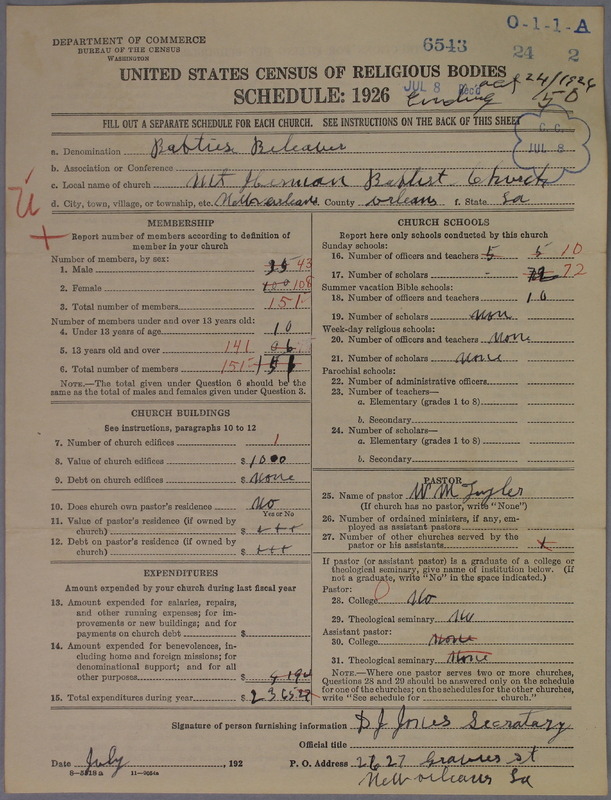 O-1-1-A
DEPARTMENT OF COMMERCE
BUREAU OF THE CENSUS
WASHINGTON
6543
24 2
UNITED STATES CENSUS OF RELIGIOUS BODIES
SCHEDULE: 1926
JUL 8 Rec'd
Ending
24/1926
FILL OUT A SEPARATE SCHEDULE FOR EACH CHURCH. SEE INSTRUCTIONS ON THE BACK OF THIS SHEET
C. C.
JUL 8
a. Denomination Babties Beleaver
b. Association or Conference
c. Local name of church Mt Herman Baptist Church
d. City, town, village, or township, etc. New orleans County orleans f. State La
MEMBERSHIP
Report number of members according to definition of member in your church
Number of members, by sex:
1. Male 35 43
2. Female 100 108
3. Total number of members 151
Number of members under and over 13 years old:
4. Under 13 years of age 10
5. 13 years old and over 141
6. Total number of members 151
NOTE.—The total given under Question 6 should be the
same as the total of males and females given under Question 3.
CHURCH BUILDINGS
See instructions, paragraphs 10 to 12
7. Number of church edifices 1
8. Value of church edifices $ 1000
9. Debt on church edifices $ None
10. Does church own pastor's residence No
Yes or No
11. Value of pastor's residence (if owned by
church) $ +++
12. Debt on pastor's residence (if owned by
church) $ +++
EXPENDITURES
Amount expended by your church during last fiscal year
13. Amount expended for salaries, repairs,
and other running expenses; for im-
provements or new buildings; and for
payments on church debt $
14. Amount expended for benevolences, in-
cluding home and foreign missions; for
denominational support; and for all
other purposes $
15. Total expenditures during year $
CHURCH SCHOOLS
Report here only schools conducted by this church
Sunday schools:
16. Number of officers and teachers 5 5 10
17. Number of scholars - 72 72
Summer vacation Bible schools:
18. Number of officers and teachers 10
19. Number of scholars Non
Week-day religious schools:
20. Number of officers and teachers None
21. Number of scholars None
Parochial schools:
22. Number of administrative officers
23. Number of teachers—
a. Elementary (grades 1 to 8)
b. Secondary
24. Number of scholars—
a. Elementary (grades 1 to 8)
b. Secondary
PASTOR
25. Name of pastor W M Taylor
(If church has no pastor, write "None")
26. Number of ordained ministers, if any, em-
ployed as assistant pastors
27. Number of other churches served by the
pastor or his assistants
If pastor (or assistant pastor) is a graduate of a college or
theological seminary, give name of institution below. (If
not a graduate, write "No" in the space indicated.)
Pastor:
28. College No
29. Theological seminary No
Assistant pastor:
30. College None
31. Theological seminary None
NOTE.—Where one pastor serves two or more churches,
Questions 28 and 29 should be answered only on the schedule
for one of the churches; on the schedules for the other churches,
write "See schedule for church."
Signature of person furnishing information D J Jones Secratary
Official title
Date July , 192 P. O. Address 2627 Gravier St
8-5518a 11-9054a New orleans La